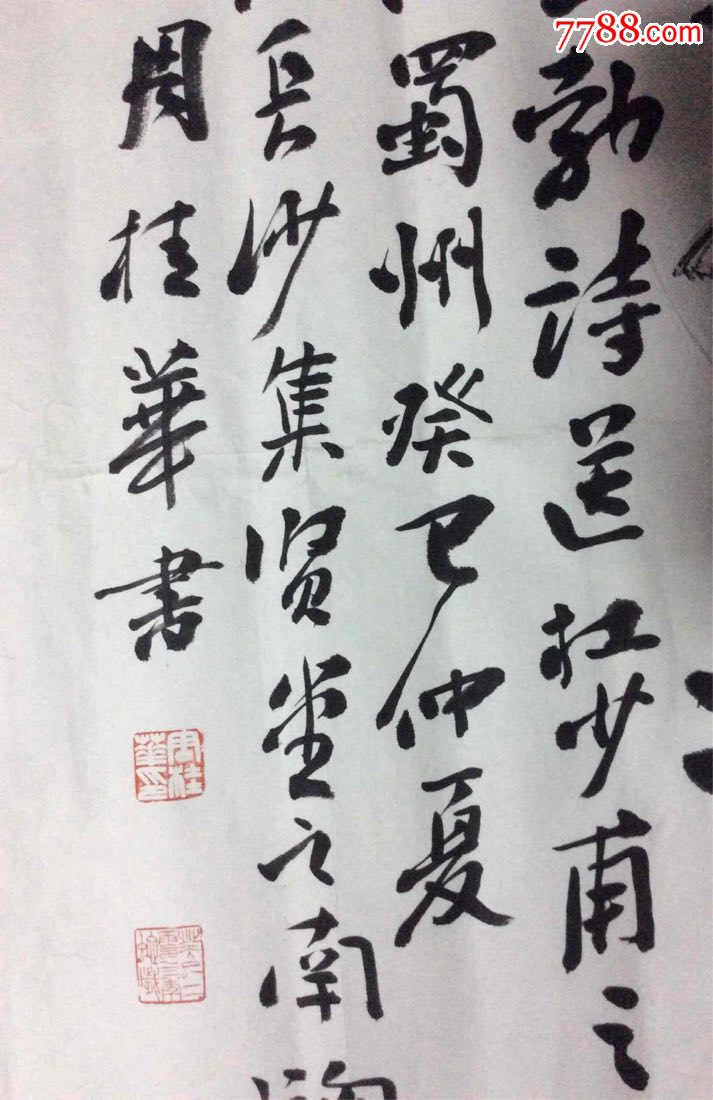 7788.com
勃詩送杜少甫之
蜀州癸巳仲夏
長沙集賢堂之南
周桂華书
周桂華印